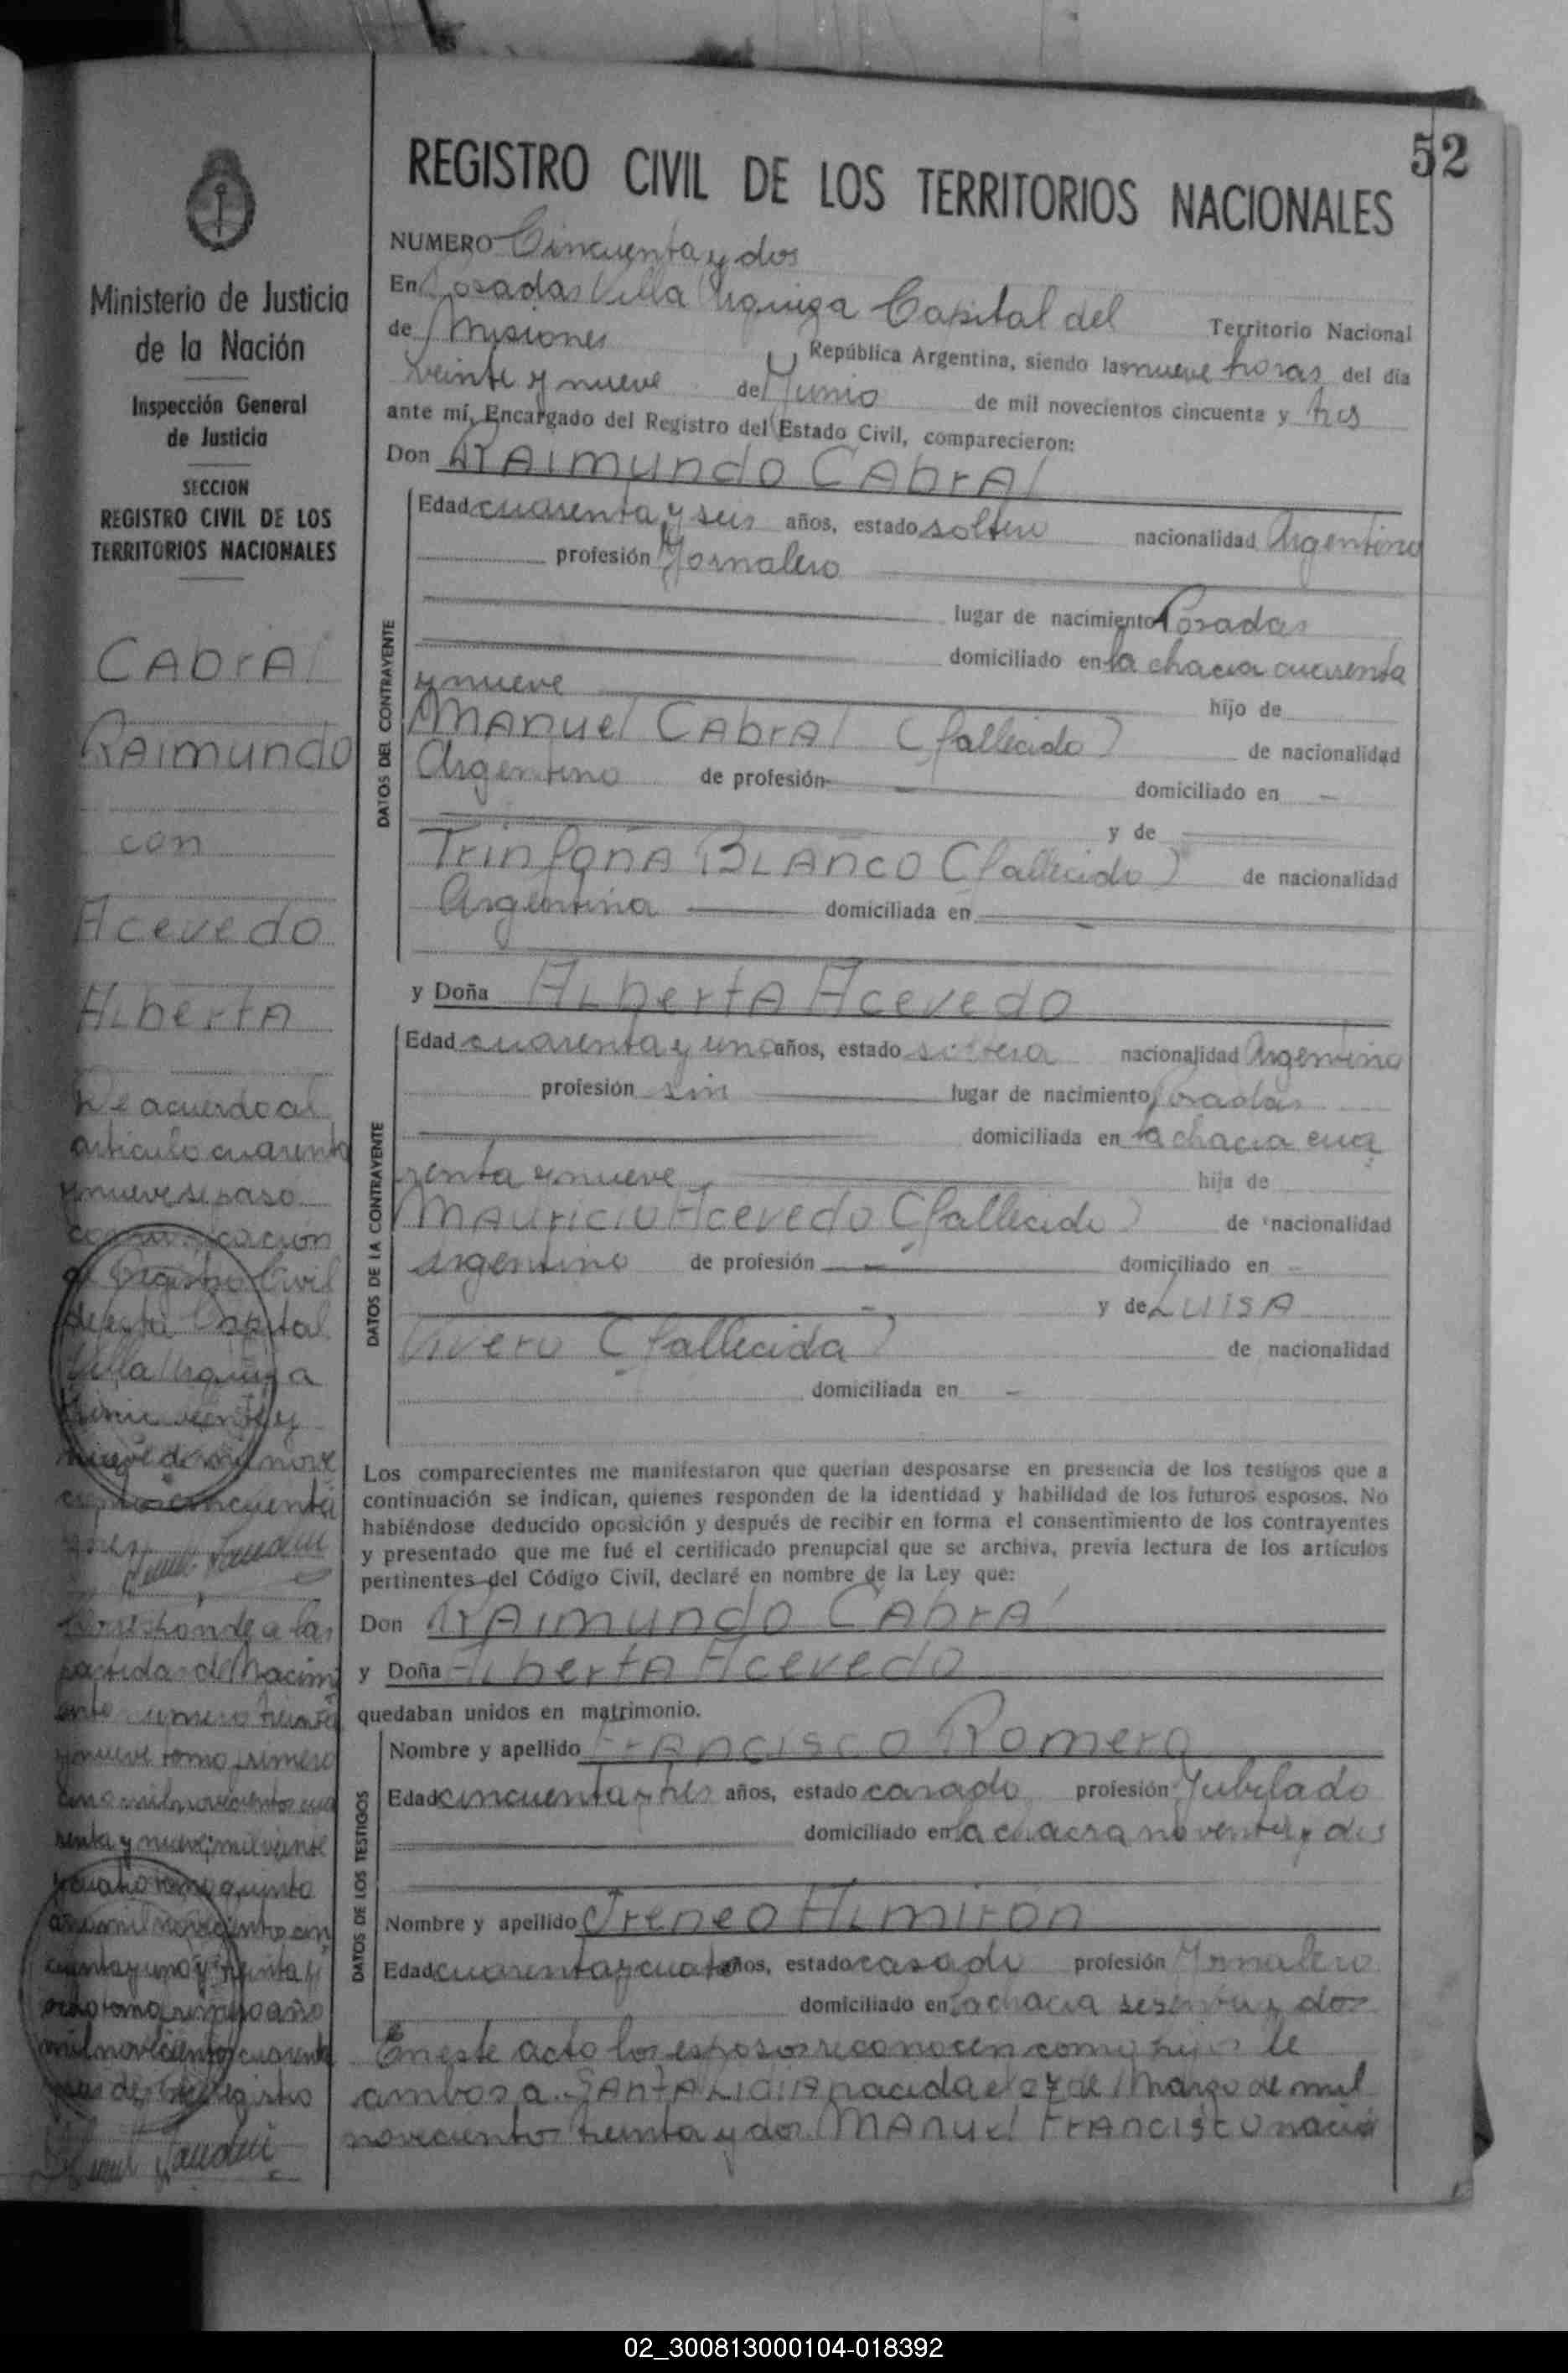 52
REGISTRO CIVIL DE LOS TERRITORIOS NACIONALES
NUMERO Cincuenta y dos
En Posadas Villa Urquiza Capital del Territorio Nacional
de Misiones República Argentina, siendo las nueve horas del día
veinte y nueve de Junio de mil novecientos cincuenta y tres
ante mí, Encargado del Registro del Estado Civil, comparecieron:
Don RAimundo CAbrAl
DATOS DEL CONTRAYENTE
Edad cuarenta y seis años, estado soltero nacionalidad Argentino
profesión Jornalero
lugar de nacimiento Posadas
domiciliado en la chacra cuarenta
y nueve hijo de
MAnuel CAbrAl (fallecido) de nacionalidad
Argentino de profesión - domiciliado en -
y de
BLAnco (fallecido) de nacionalidad
Argentina domiciliada en -
y Doña ALbertA Acevedo
DATOS DE LA CONTRAYENTE
Edad cuarenta y uno años, estado soltera nacionalidad Argentina
profesión sin lugar de nacimiento Posadas
domiciliada en la chacra cua
renta y nueve hija de
MAuricio Acevedo (fallecido) de nacionalidad
argentino de profesión - domiciliado en -
- y de LuisA
(fallecida) de nacionalidad
domiciliada en -
Los comparecientes me manifestaron que querían desposarse en presencia de los testigos que a
continuación se indican, quienes responden de la identidad y habilidad de los futuros esposos. No
habiéndose deducido oposición y después de recibir en forma el consentimiento de los contrayentes
y presentado que me fué el certificado prenupcial que se archiva, previa lectura de los artículos
pertinentes del Código Civil, declaré en nombre de la Ley que:
Don RAimundo CAbrAl
y Doña ALbertA Acevedo
quedaban unidos en matrimonio.
DATOS DE LOS TESTIGOS
Nombre y apellido FrAncisco Romero
Edad cincuenta y tres años, estado casado profesión Jubilado
domiciliado en la chacra noventa y dos
Nombre y apellido Ireneo ALmirón
Edad cuarenta y cuatro años, estado casado profesión Jornalero
domiciliado en la chacra sesenta y dos
En este acto los esposos reconocen como hijos de
ambos a nacida el de Marzo de mil
novecientos treinta y dos MAnuel FrAncisco nacio
Ministerio de Justicia
de la Nación
Inspección General
de Justicia
SECCION
REGISTRO CIVIL DE LOS
TERRITORIOS NACIONALES
CAbrAl
RAimundo
con
Acevedo
ALbertA
De acuerdo al
articulo cuarenta
y nueve se paso
comunicación
al Registro Civil
de esta Capital
Villa Urquiza
Junio veinte y
nueve de mil nove
cientos cincuenta
y tres
Corresponde a las
partidas de Nacimi
ento numero treinta
y nueve tomo primero
año mil novecientos cua
renta y nueve; mil veinte
y cuatro tomo quinto
año mil novecientos cin
cuenta y uno y treinta y
ocho tomo primero año
mil novecientos cuarenta
de este Registro
02_300813000104-018392